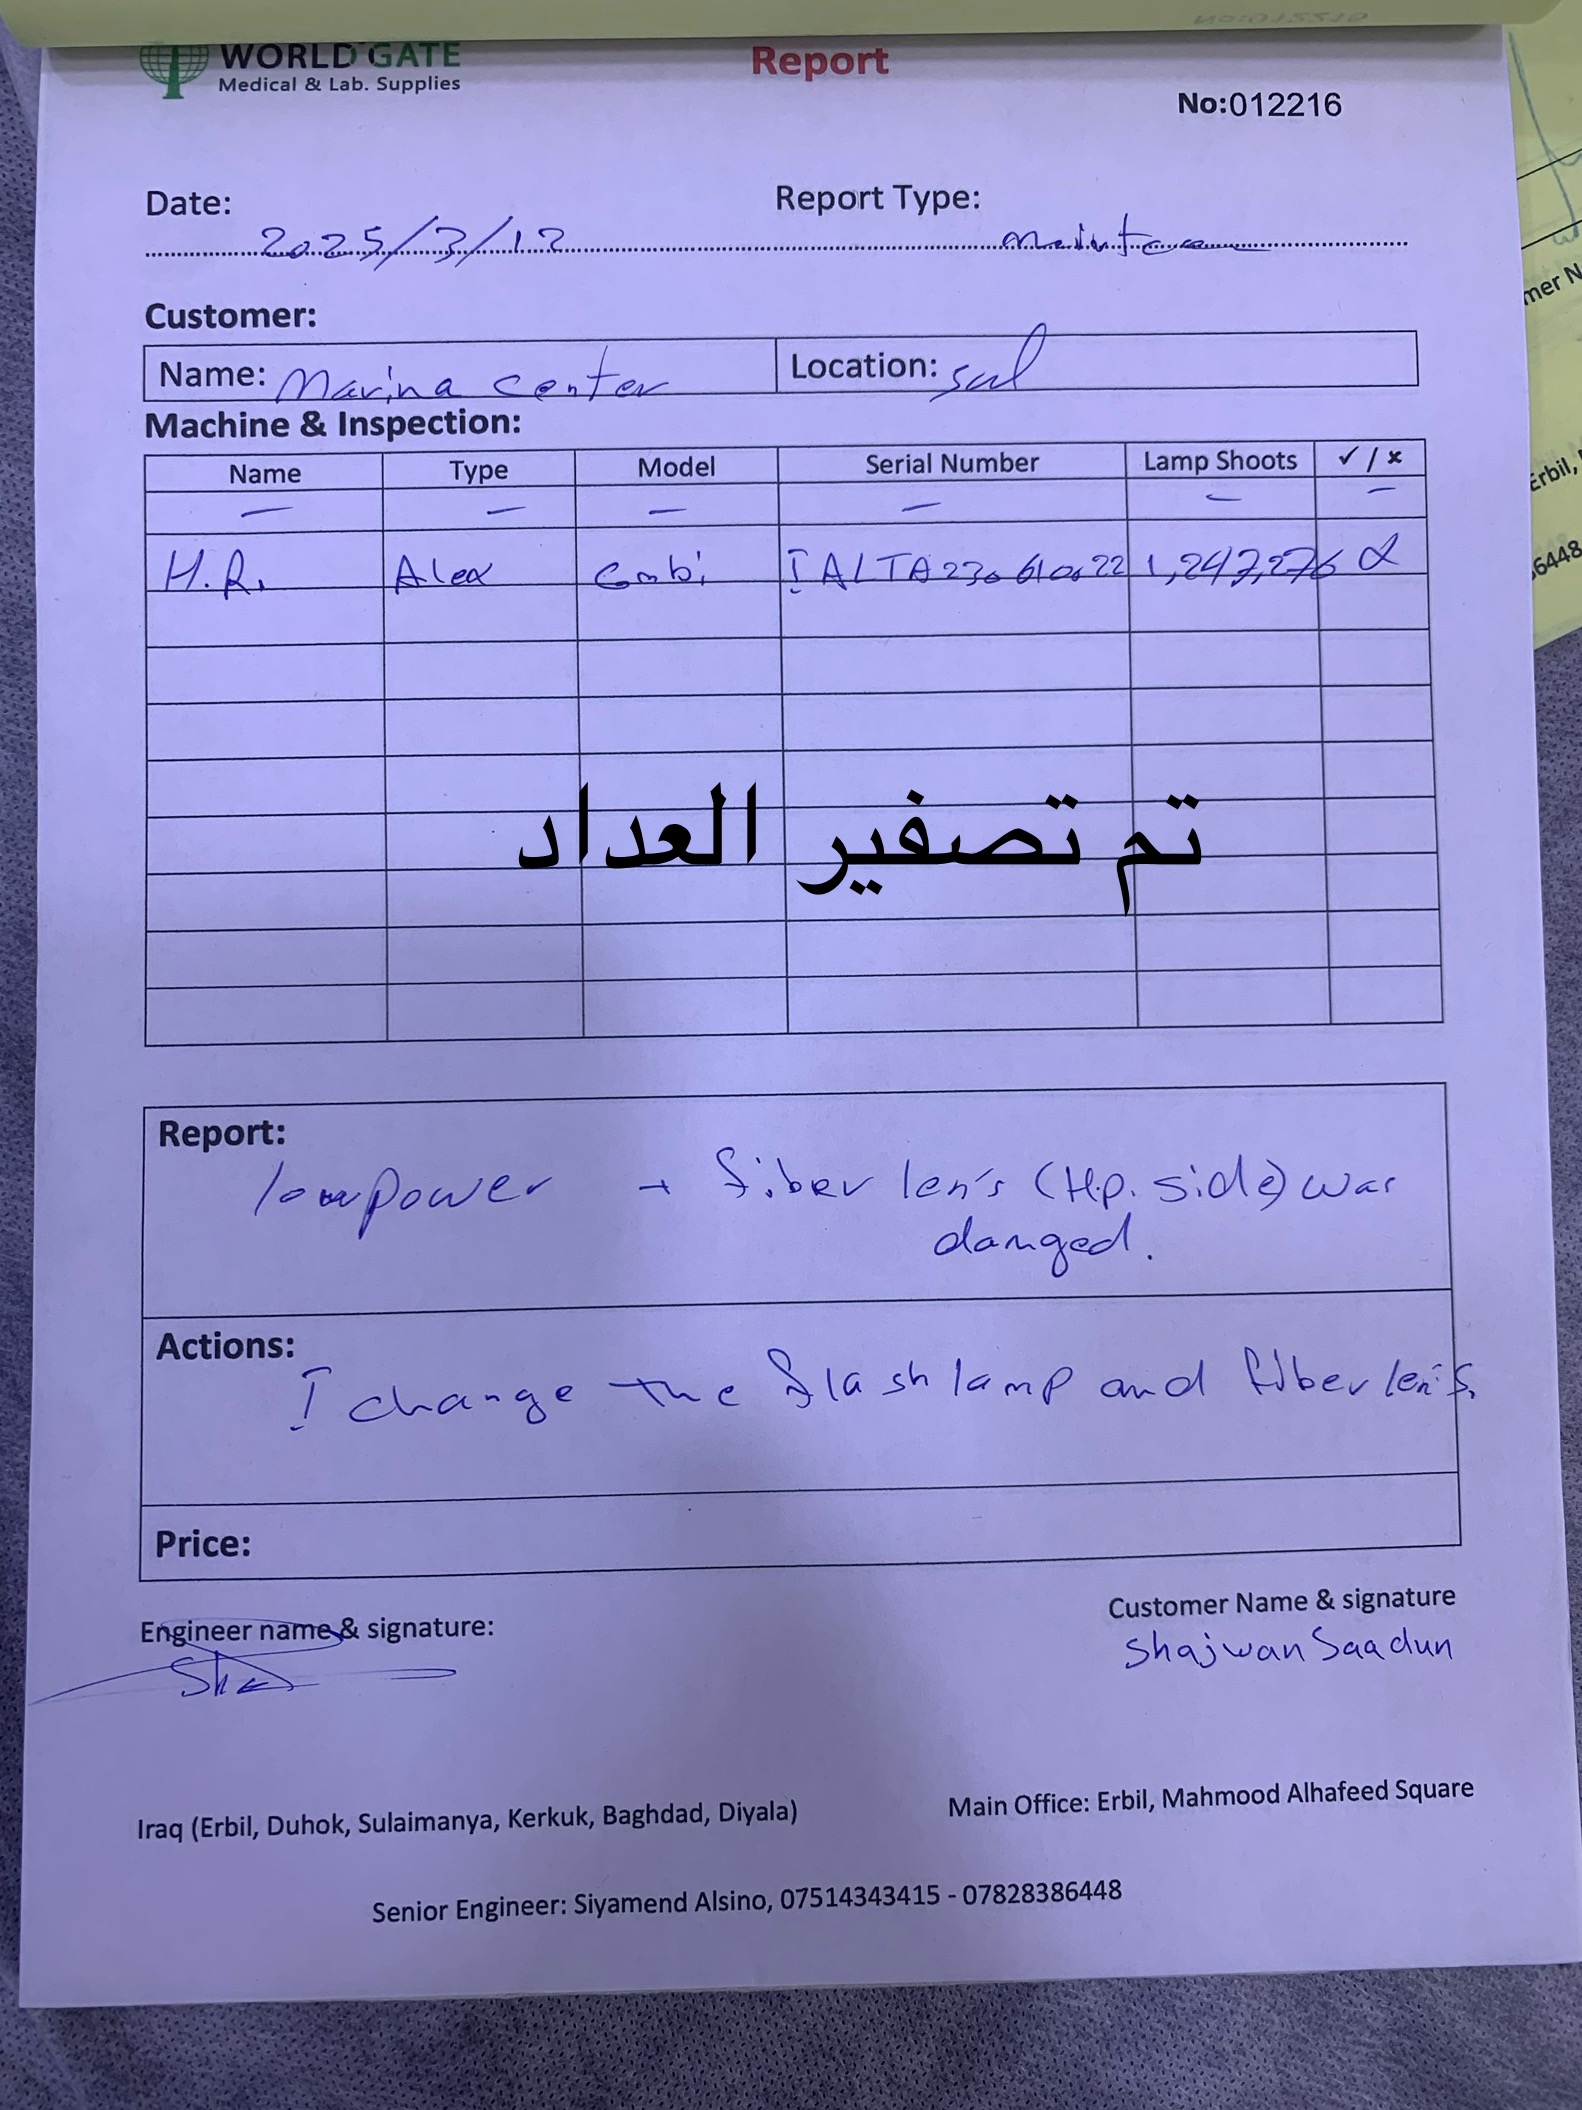 WORLD GATE
Medical & Lab. Supplies
Report
No:012216
Date: 2025/3/12
Report Type:
Customer:
Name: Marina center
Location: sul
Machine & Inspection:
Name Type Model Serial Number Lamp Shoots ✓ / ×
— — — — — —
H.R. Alex Combi IALTA230610022 1,247,276
تم تصفير العداد
Report:
low power → fiber len's (H.p. side) was
damged.
Actions:
I change the flash lamp and fiber len's.
Price:
Engineer name & signature:
Customer Name & signature
Shajwan Saadun
Iraq (Erbil, Duhok, Sulaimanya, Kerkuk, Baghdad, Diyala)
Main Office: Erbil, Mahmood Alhafeed Square
Senior Engineer: Siyamend Alsino, 07514343415 - 07828386448
mer N
Erbil,
6448